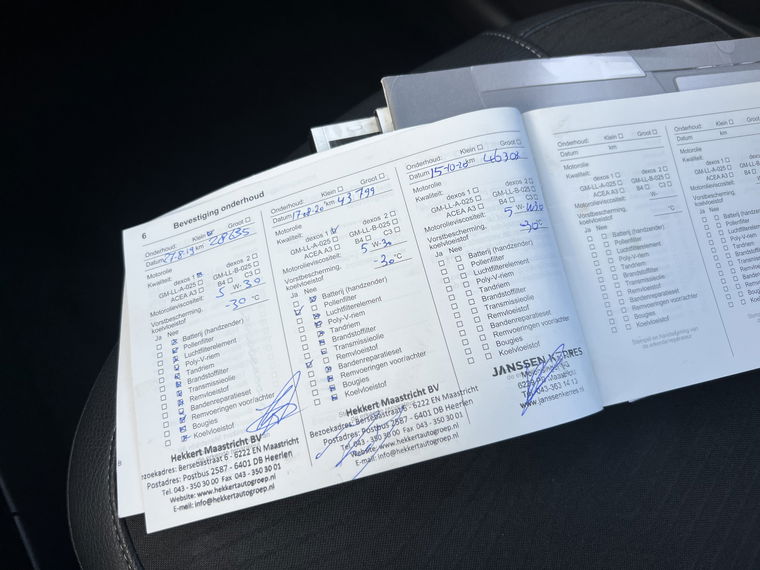 6 Bevestiging onderhoud
Onderhoud: Klein Groot
Datum 27.8.19 km 28635
Motorolie
Kwaliteit: dexos 1 dexos 2
GM-LL-A-025 GM-LL-B-025
ACEA A3 B4 C3
Motorolieviscositeit: 5 W- 30
Vorstbescherming, koelvloeistof -30 °C
Ja Nee
Batterij (handzender)
Pollenfilter
Luchtfilterelement
Poly-V-riem
Tandriem
Brandstoffilter
Transmissieolie
Remvloeistof
Bandenreparatieset
Remvoeringen voor/achter
Bougies
Koelvloeistof
Hekkert Maastricht BV
Bezoekadres: Bersebastraat 6 - 6222 EN Maastricht
Postadres: Postbus 2587 - 6401 DB Heerlen
Tel. 043 - 350 30 00 Fax 043 - 350 30 01
Website: www.hekkertautogroep.nl
E-mail: info@hekkertautogroep.nl
Onderhoud: Klein Groot
Datum 17-08-20 km 43.799
Motorolie
Kwaliteit: dexos 1 dexos 2
GM-LL-A-025 GM-LL-B-025
ACEA A3 B4 C3
Motorolieviscositeit: 5 W-30
Vorstbescherming, koelvloeistof -30 °C
Ja Nee
Batterij (handzender)
Pollenfilter
Luchtfilterelement
Poly-V-riem
Tandriem
Brandstoffilter
Transmissieolie
Remvloeistof
Bandenreparatieset
Remvoeringen voor/achter
Bougies
Koelvloeistof
Hekkert Maastricht BV
Bezoekadres: Bersebastraat 6 - 6222 EN Maastricht
Postadres: Postbus 2587 - 6401 DB Heerlen
Tel. 043 - 350 30 00 Fax 043 - 350 30 01
Website: www.hekkertautogroep.nl
E-mail: info@hekkertautogroep.nl
Onderhoud: Klein Groot
Datum 15-10- km
Motorolie
Kwaliteit: dexos 1 dexos 2
GM-LL-A-025 GM-LL-B-025
ACEA A3 B4 C3
Motorolieviscositeit: 5 W-
Vorstbescherming, koelvloeistof -30 °C
Ja Nee
Batterij (handzender)
Pollenfilter
Luchtfilterelement
Poly-V-riem
Tandriem
Brandstoffilter
Transmissieolie
Remvloeistof
Bandenreparatieset
Remvoeringen voor/achter
Bougies
Koelvloeistof
JANSSEN KERRES
www.janssenkerres.nl
Onderhoud: Klein Groot
Datum km
Motorolie
Kwaliteit: dexos 1 dexos 2
GM-LL-A-025 GM-LL-B-025
ACEA A3 B4 C3
Motorolieviscositeit: W-
Vorstbescherming, koelvloeistof °C
Ja Nee
Batterij (handzender)
Pollenfilter
Luchtfilterelement
Poly-V-riem
Tandriem
Brandstoffilter
Transmissieolie
Remvloeistof
Bandenreparatieset
Remvoeringen voor/achter
Bougies
Koelvloeistof
Onderhoud: Klein
Datum km
Motorolie
Kwaliteit: dexos 1
GM-LL-A-025
ACEA A3 B4
Motorolieviscositeit:
Vorstbescherming, koelvloeistof
Ja Nee
Batterij (handzender)
Pollenfilter
Luchtfilterelement
Poly-V-riem
Tandriem
Brandstoffilter
Transmissieolie
Remvloeistof
Bandenreparatieset
Remvoeringen
Bougies
Koelvloeistof